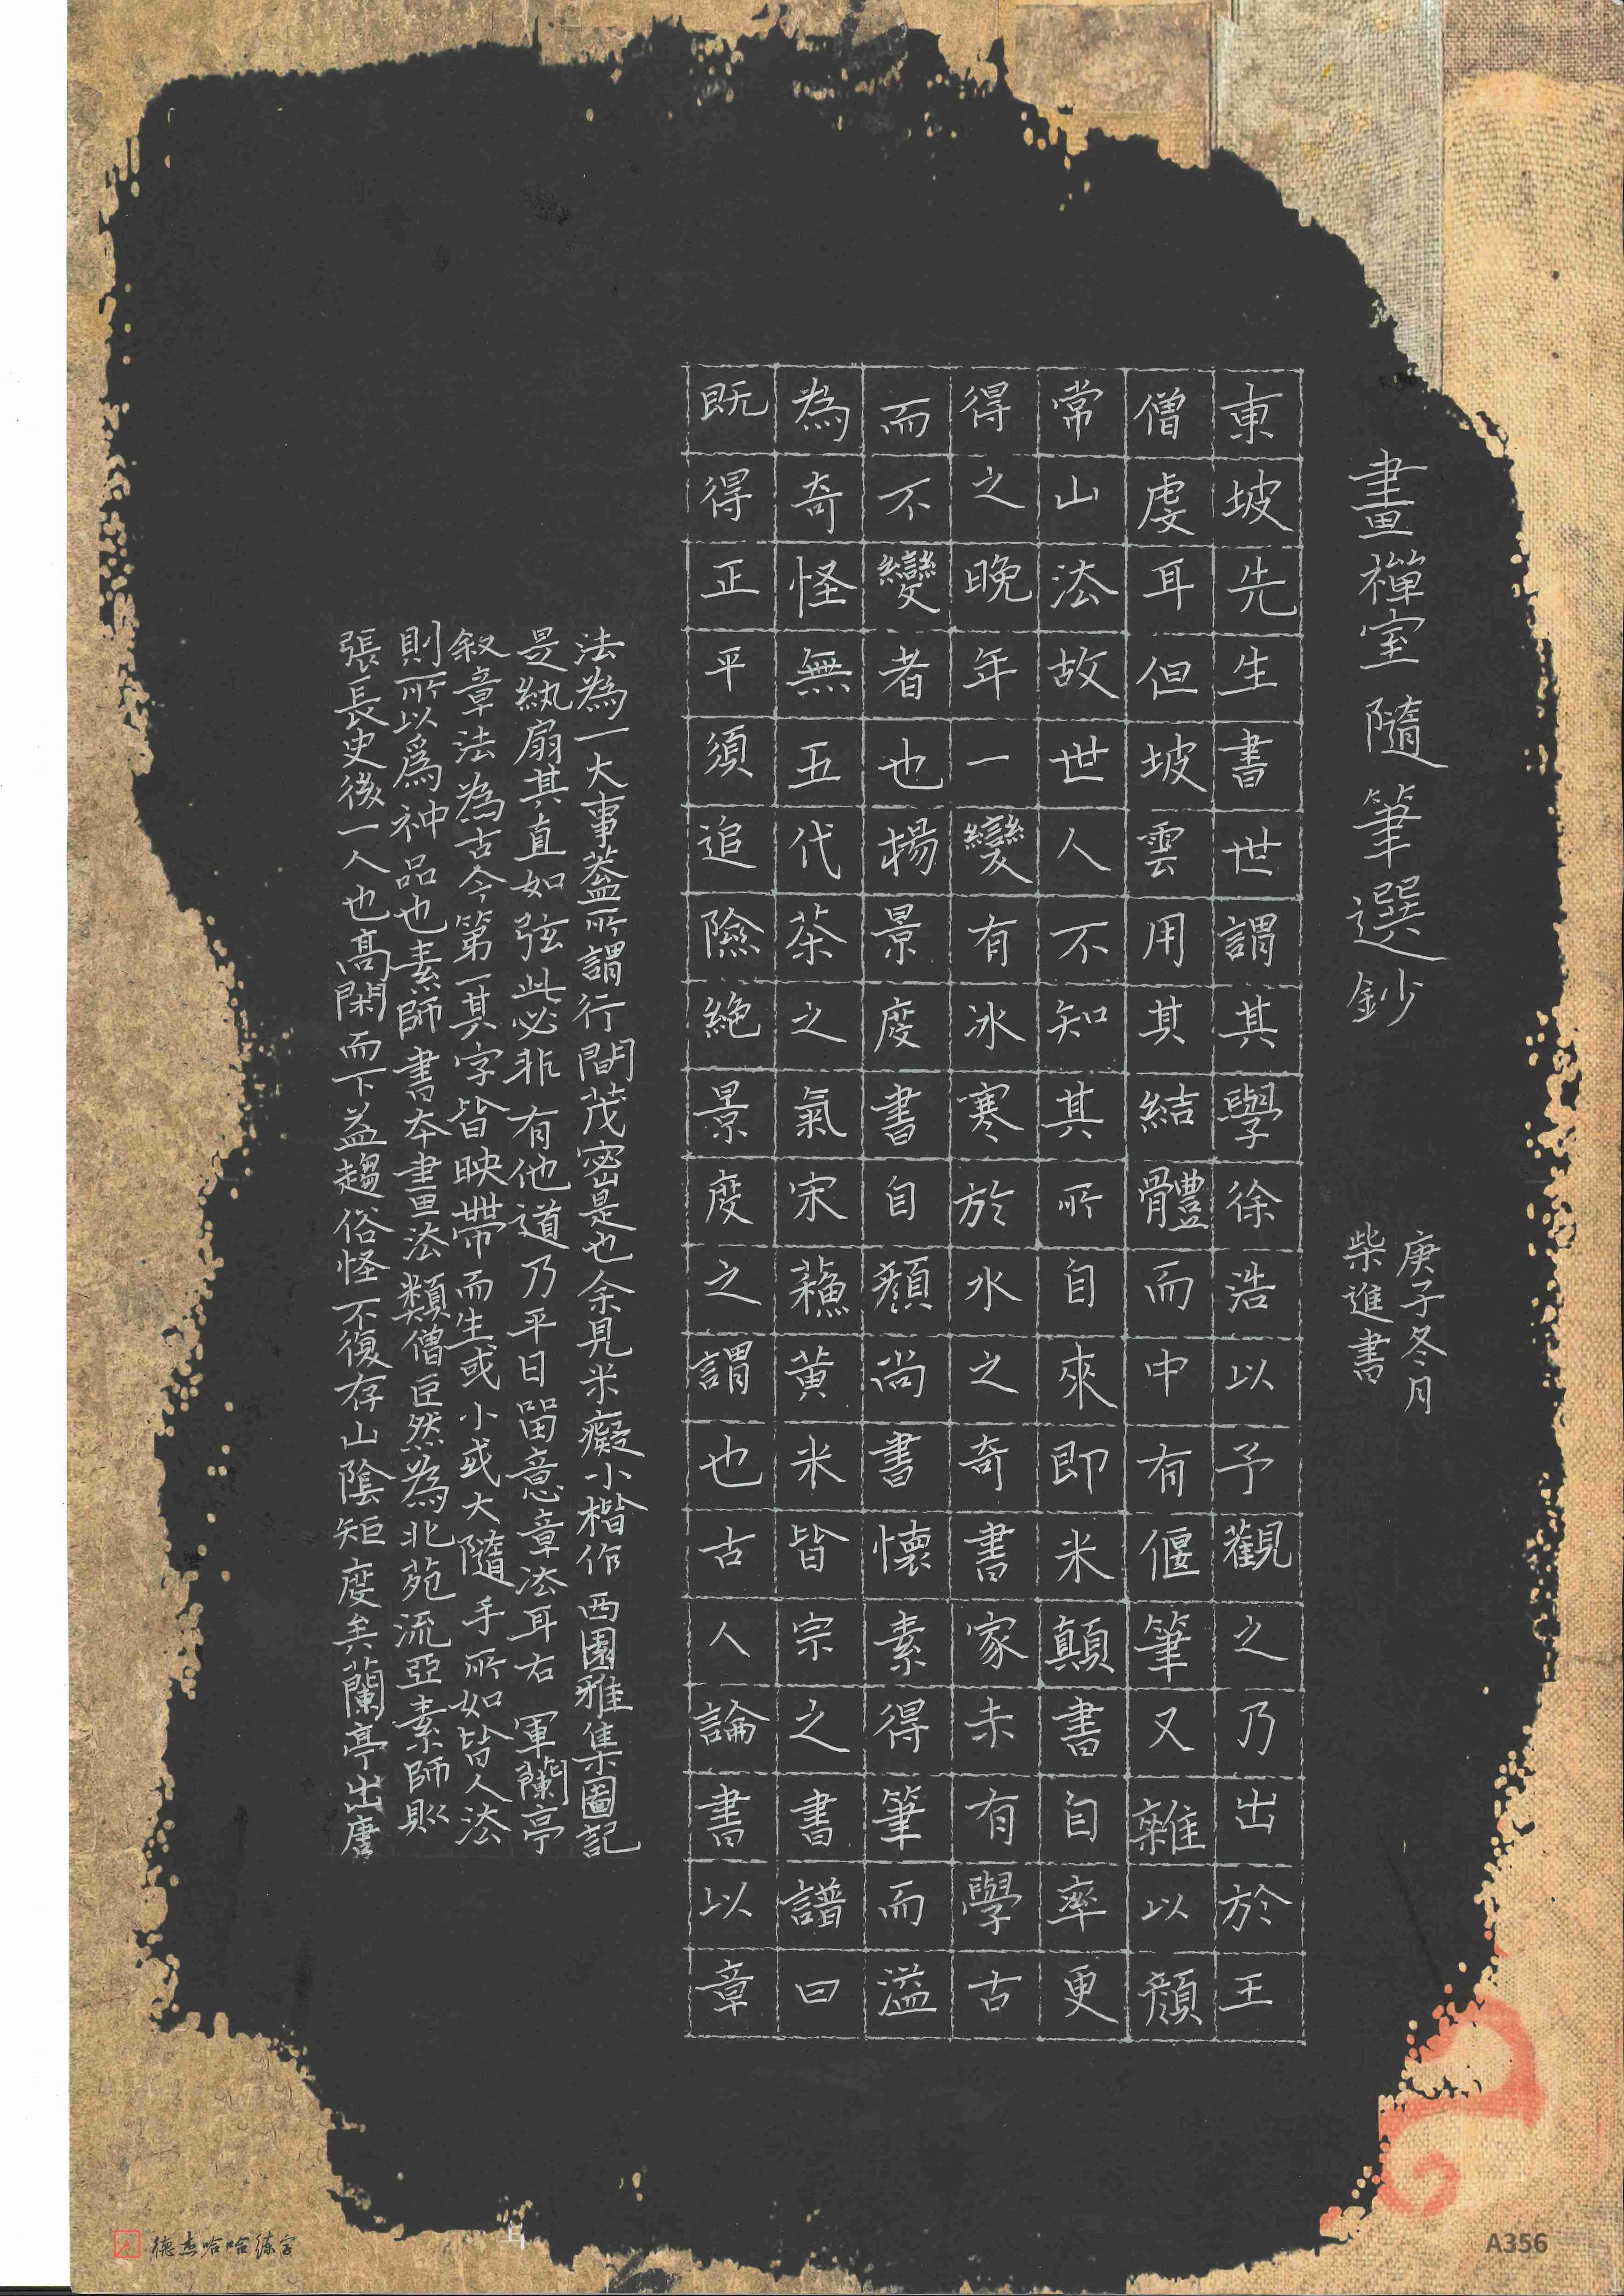 畫禪室隨筆選鈔
庚子冬月
柴進書
東坡先生書世謂其學徐浩以予觀之乃出於王
僧虔耳但坡雲用其結體而中有偃筆又雜以顏
常山法故世人不知其所自來即米顛書自率更
得之晚年一變有冰寒於水之奇書家未有學古
而不變者也楊景度書自顏尚書懷素得筆而溢
為奇怪無五代茶之氣宋蘇黃米皆宗之書譜曰
既得正平須追險絕景度之謂也古人論書以章
法為一大事蓋所謂行間茂密是也余見米癡小楷作西園雅集圖記
是紈扇其直如弦此必非有他道乃平日留意章法耳右軍蘭亭
敘章法為古今第一其字皆映帶而生或小或大隨手所如皆入法
則所以爲神品也素師書本畫法類僧巨然為北苑流亞素師則
張長史後一人也高閑而下益趨俗怪不復存山陰矩度矣蘭亭出唐
德杰哈哈练字
A356